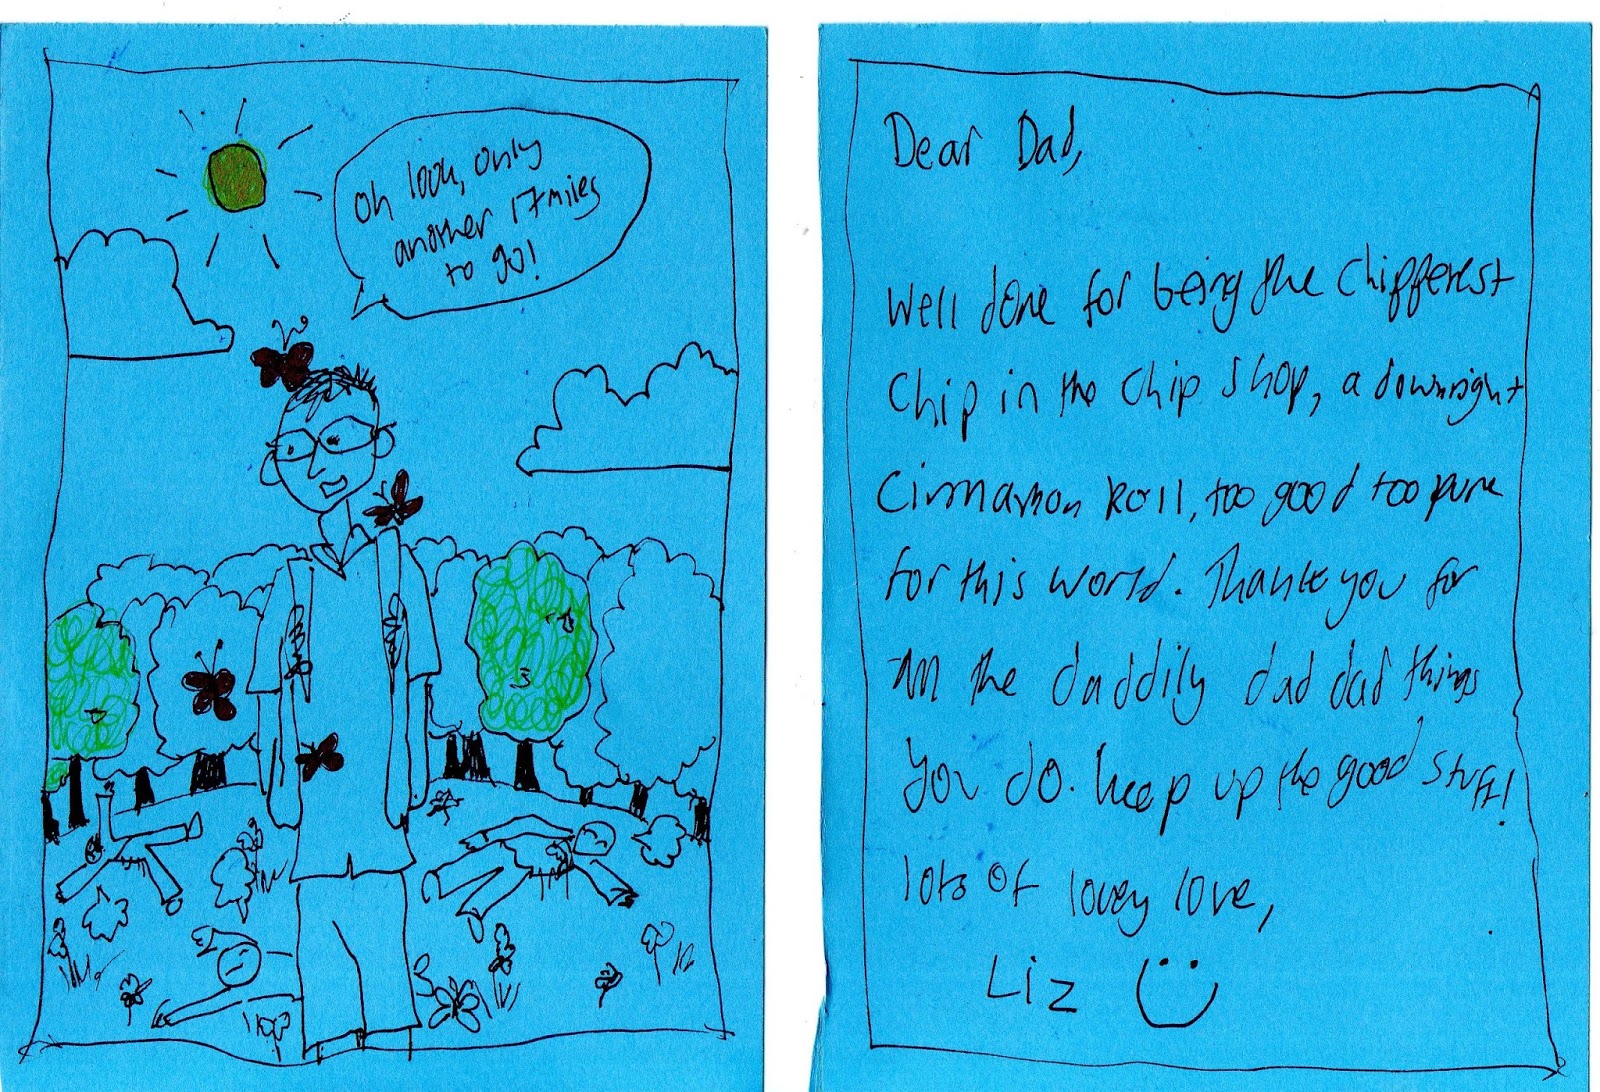 Oh look, only
another 17 miles
to go!
Dear Dad,
Well done for being the chipperest
Chip in the chip shop, a downright
Cinnamon Roll, too good too pure
for this world. Thank you for
all the daddily dad dad things
you do. keep up the good stuff!
lots of lovey love,
Liz